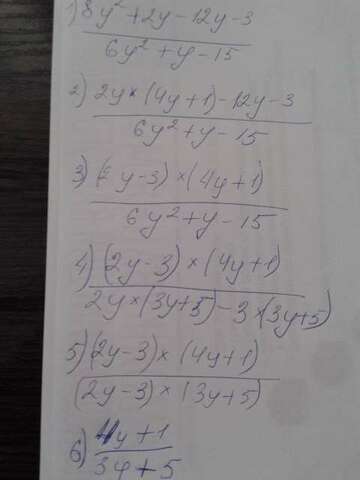 1) 8y² + 2y - 12y - 3
6y² + y - 15
2) 2y × (4y + 1) - 12y - 3
6y² + y - 15
3) (2y - 3) × (4y + 1)
6y² + y - 15
4) (2y - 3) × (4y + 1)
2y × (3y + 5) - 3 × (3y + 5)
5) (2y - 3) × (4y + 1)
(2y - 3) × (3y + 5)
6) 4y + 1
3y + 5